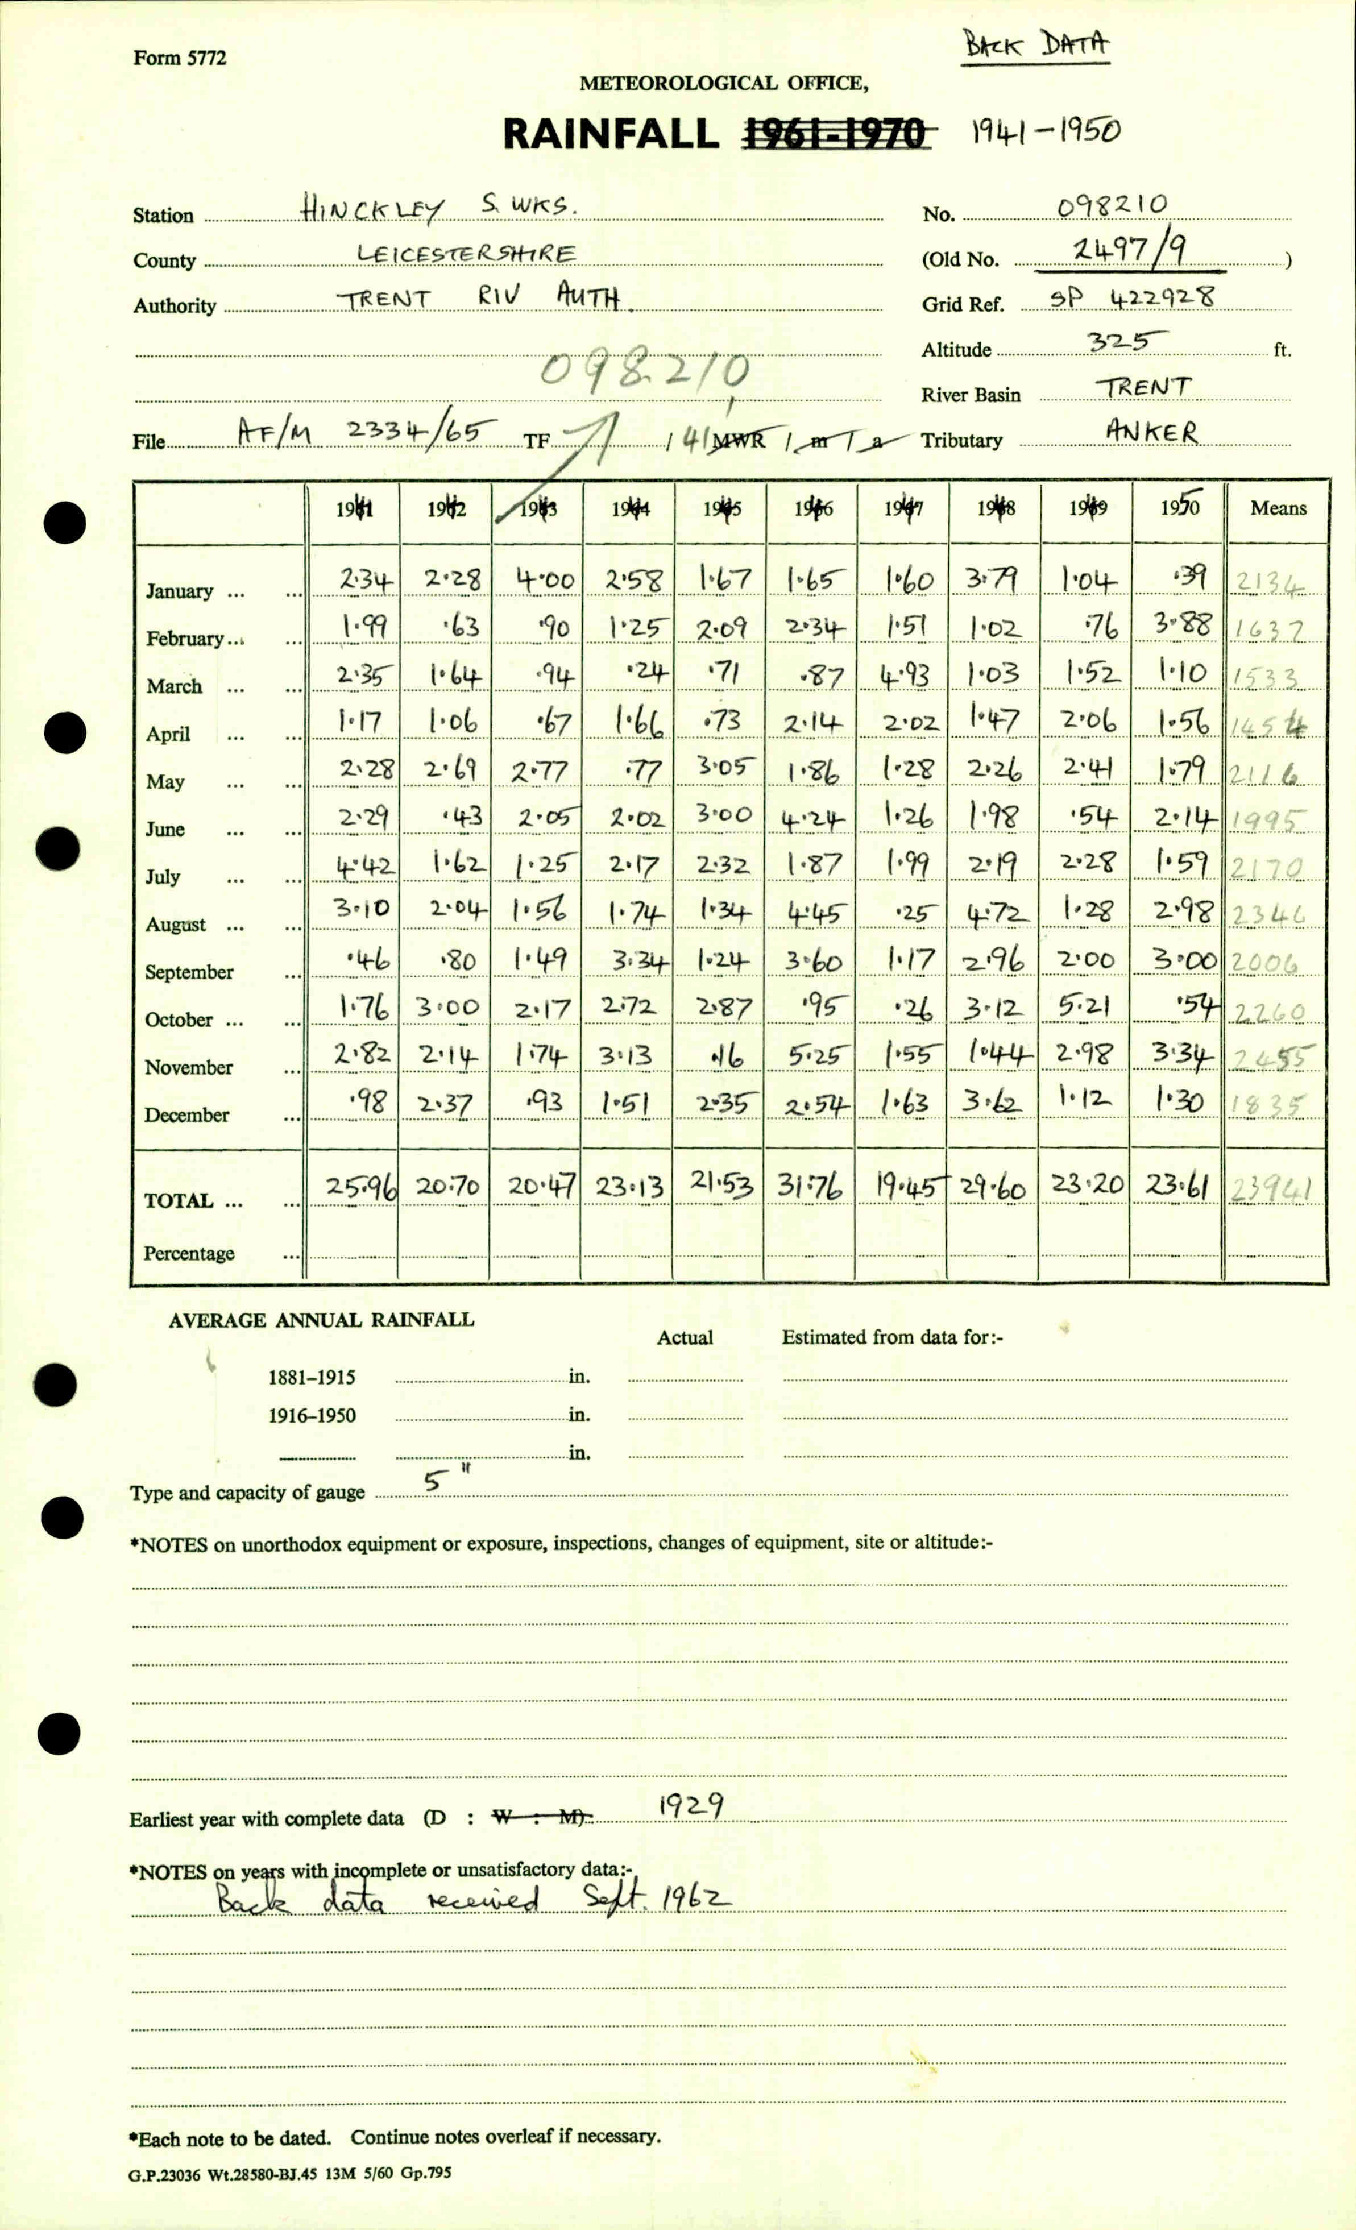 Form 5772
BACK DATA
METEOROLOGICAL OFFICE,
RAINFALL 1961-1970 1941-1950
Station HINCKLEY S. WKS. No. 098210
County LEICESTERSHIRE (Old No. 2497/9 )
Authority TRENT RIV AUTH. Grid Ref. SP 422928
Altitude 325 ft.
098210
River Basin TRENT
File AF/M 2334/65 TF / 41 MWR / m / a Tributary ANKER
1941 1942 1943 1944 1945 1946 1947 1948 1949 1950 Means
January ... ... 2.34 2.28 4.00 2.58 1.67 1.65 1.60 3.79 1.04 .39 2134
February ... ... 1.99 .63 .90 1.25 2.09 2.34 1.51 1.02 .76 3.88 1637
March ... ... 2.35 1.64 .94 .24 .71 .87 4.93 1.03 1.52 1.10 1533
April ... ... 1.17 1.06 .67 1.66 .73 2.14 2.02 1.47 2.06 1.56 1454
May ... ... 2.28 2.69 2.77 .77 3.05 1.86 1.28 2.26 2.41 1.79 2116
June ... ... 2.29 .43 2.05 2.02 3.00 4.24 1.26 1.98 .54 2.14 1995
July ... ... 4.42 1.62 1.25 2.17 2.32 1.87 1.99 2.19 2.28 1.59 2170
August ... ... 3.10 2.04 1.56 1.74 1.34 4.45 .25 4.72 1.28 2.98 2346
September ... .46 .80 1.49 3.34 1.24 3.60 1.17 2.96 2.00 3.00 2006
October ... ... 1.76 3.00 2.17 2.72 2.87 .95 .26 3.12 5.21 .54 2260
November ... 2.82 2.14 1.74 3.13 .16 5.25 1.55 1.44 2.98 3.34 2455
December ... .98 2.37 .93 1.51 2.35 2.54 1.63 3.62 1.12 1.30 1835
TOTAL ... ... 25.96 20.70 20.47 23.13 21.53 31.76 19.45 29.60 23.20 23.61 23941
Percentage ...
AVERAGE ANNUAL RAINFALL
Actual Estimated from data for:-
1881-1915 in.
1916-1950 in.
in.
Type and capacity of gauge 5"
*NOTES on unorthodox equipment or exposure, inspections, changes of equipment, site or altitude:-
Earliest year with complete data (D : W : M): 1929
*NOTES on years with incomplete or unsatisfactory data:-
Back data received Sept. 1962
*Each note to be dated. Continue notes overleaf if necessary.
G.P.23036 Wt.28580-BJ.45 13M 5/60 Gp.795